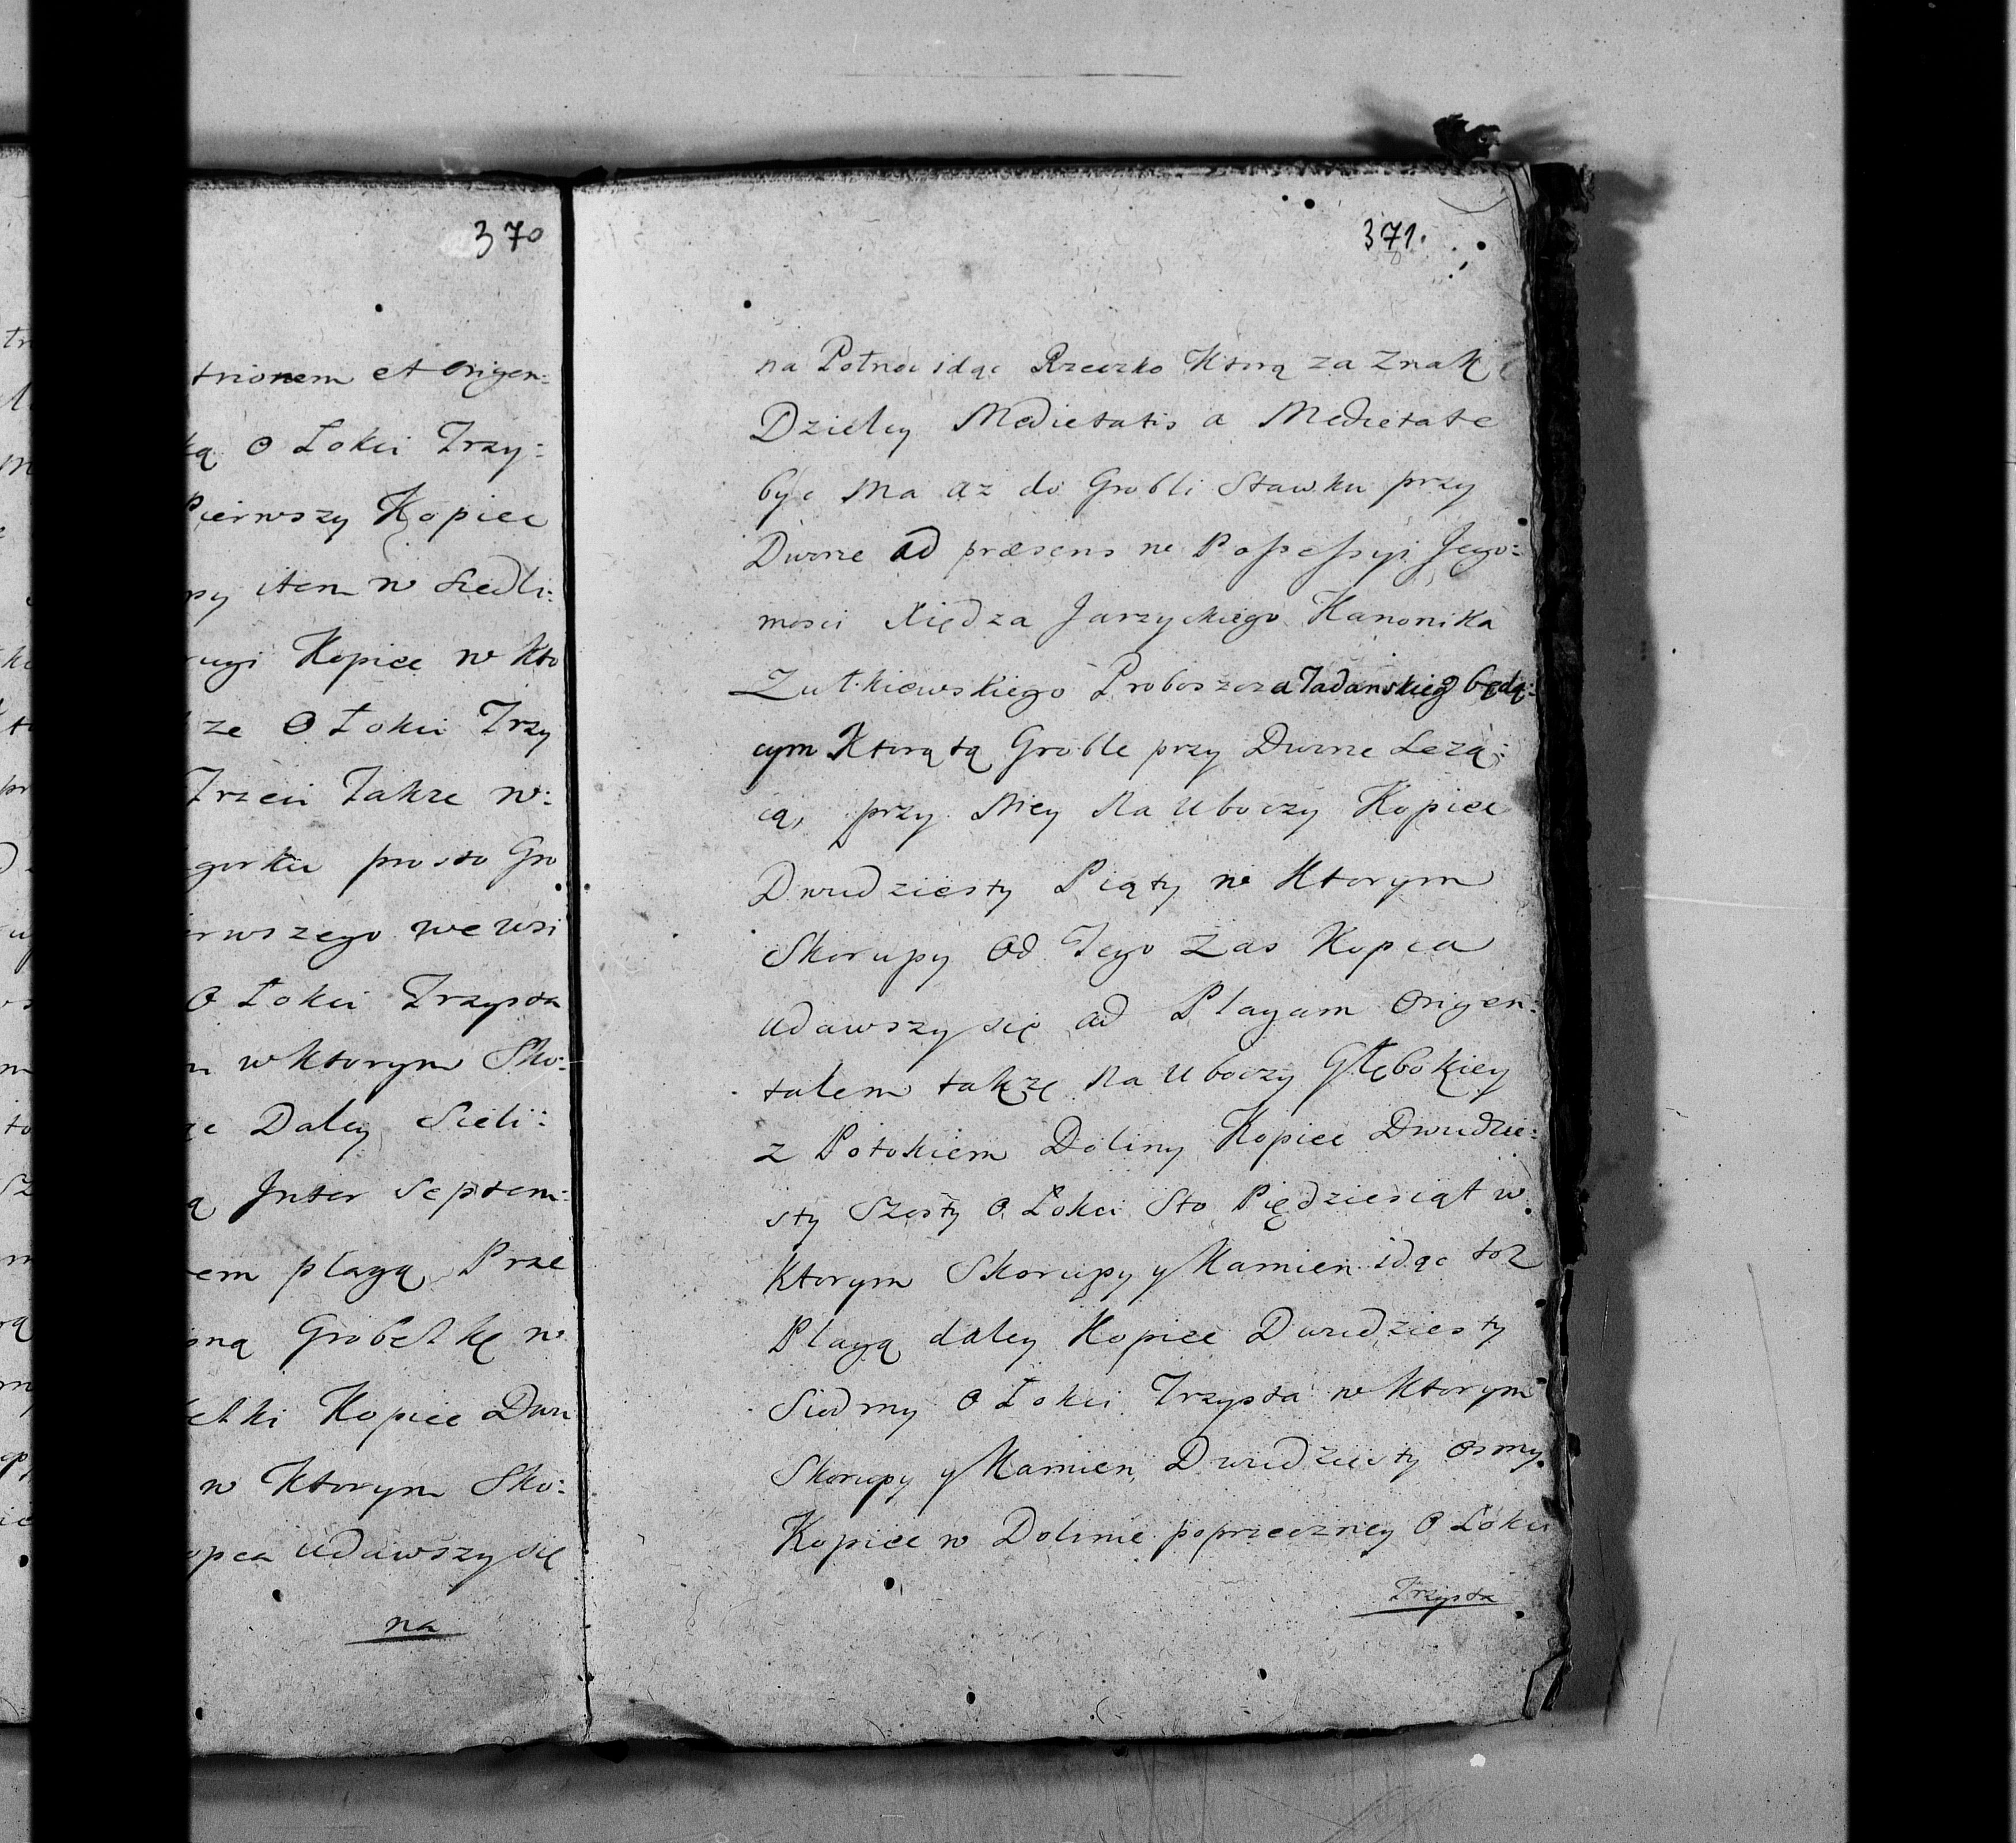 370
trionem et origen:
ką O Łokci Trzy:
Pierwszy Kopiec
py item w Siedli:
rugi Kopiec w Kto
ze O Łokci Trzy
Trzeci Takze w:
gorku prosto Gro
rwszego we wsi
O Łokci Trzysta
m w Ktorym Sko:
ze Daley Sieli:
ą Inter Septem:
em plagą Prze
oną Grobelkę w
elki Kopiec Dwu
w Ktorym Sko:
opca udawszy się
na
371.
na Połnoc idąc Rzeczko Ktorą za Znak
Dzielcy Medietatis a Medietate
być ma az do Grobli Stawku przy
Dwrze ad præsens w Possessyi Jego:
mosci Xiędza Jarzyckiego Kanonika
Zułkiewskiego Proboszcza Tadanskieg będą:
cym Ktorą tą Groble przy Dwrze Lezą:
cą, przy Niey Na Uboczy Kopiec
Dwudziesty Piąty w Ktorym
Skorupy Od Tego Zas Kopca
udawszy się ad Plagam Origen:
talem takze Na Uboczy Głębokiey
z Potokiem Doliny Kopiec Dwudzie:
sty Szosty O Łokci Sto Piędziesiąt w
Ktorym Skorupy y Kamien idąc toz
Plagą daley Kopiec Dwudziesty
Siodmy O Łokci Trzysta w Ktorym
Skorupy y Kamien, Dwudziesty Osmy
Kopiec w Dolinie poprzeczney O Łokci
Trzysta